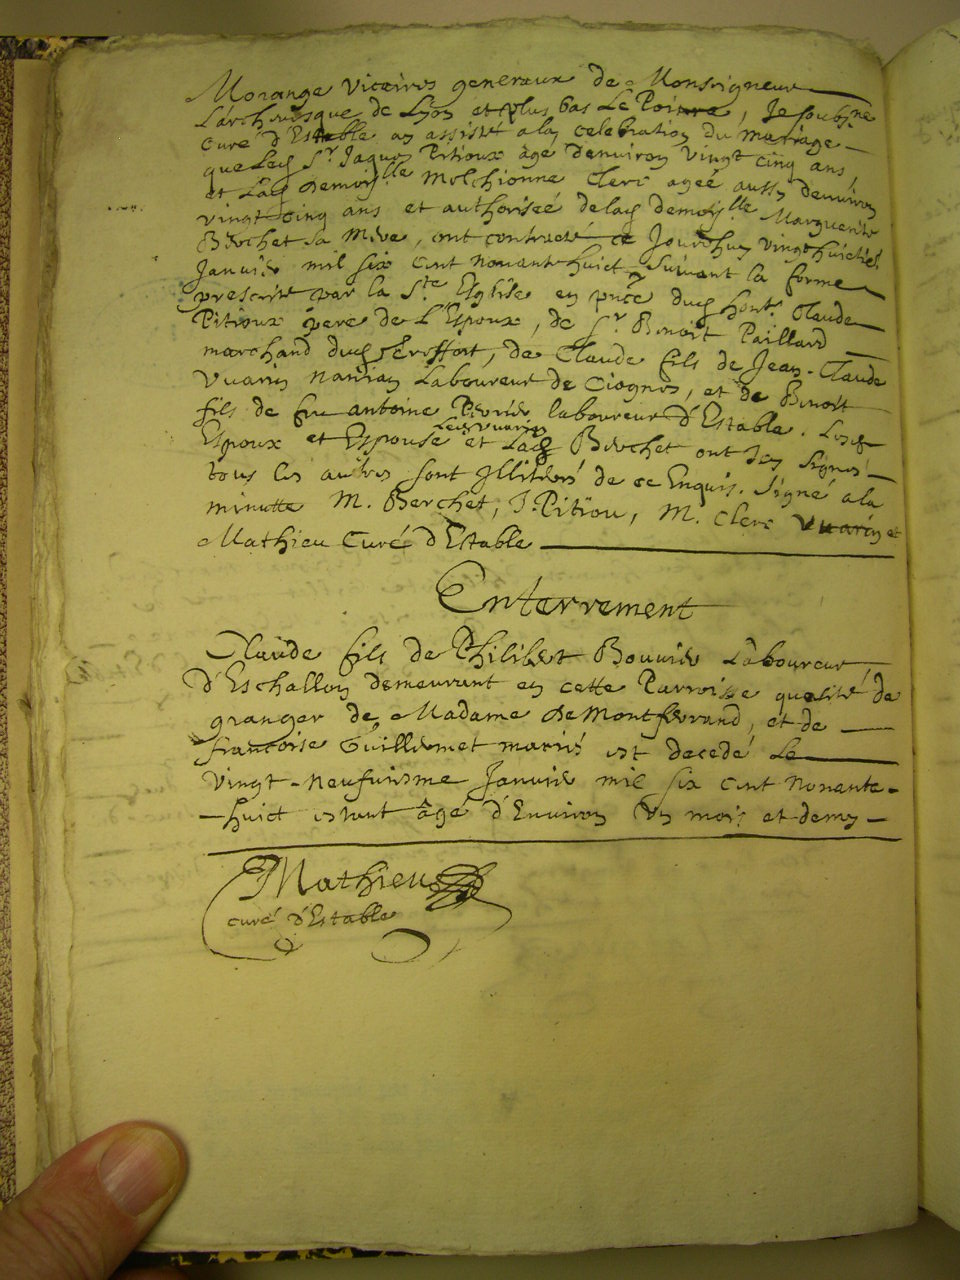 Morange Vicaires generaux de Monseigneur
L'archevesque de Lyon et plus bas Le Poitre, Je soubsne
curé d'Estable ay assisté a la celebration du mariage
que Led Sr Jaques Pitioux âgé denviron vingt cinq ans,
et Lad demoislle Melchionne Clerc agée aussy denviron
vingt-cinq ans et authorisée delad demoislle Marguerite
Berchet sa mere, ont contracté ce Jourdhuy vingthuictie
Janvier mil six cent nonante huict suivant la forme
prescrite par la Ste Eglise en pnce dud hont Claude
Pitioux pere de L'Espoux, de Sr Benoit Paillard
marchand dud, de Claude fils de Jean-Claude
Vuarin Laboureur de Ciognes, et de Benoit
fils de feu antoine laboureur d'Estable. Lesd
Led Vuarin
Espoux et Espouse et Lad Berchet ont Icy signés
tous les autres sont Illiterés de ce Enquis. Signé a la
minutte M. Berchet, J. Pitiou, M. Clerc Vuarin et
Mathieu Curé d'Estable
Enterrement
Claude fils de Philibert Bouvier Laboureur
d'Eschallon demeurant en cette Parroisse qualité de
granger de Madame de Montferrand, et de
francoise Guillermet mariés est decedé Le
vingt-neufviesme Janvier mil six cent nonante-
huict estant âgé d'Environ Un mois et demy
Mathieu
curé d'Estable